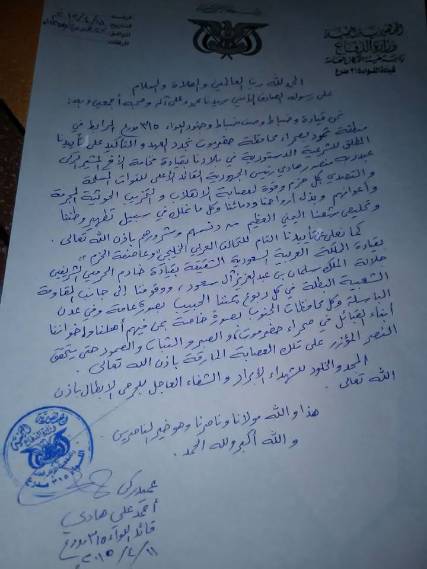 الجمهورية اليمنية
وزارة الدفاع
قيادة اللواء ٣١٥ مدرع
التاريخ
الحمد لله رب العالمين والصلاة والسلام
على رسوله الصادق الأمين سيدنا محمد وعلى آله وصحبه أجمعين وبعد:
نحن قيادة وضباط وصف ضباط وجنود اللواء ٣١٥ مدرع المرابط في
منطقة ثمود بصحراء محافظة حضرموت نجدد العهد والتأكيد على تأييدنا
المطلق للشرعية الدستورية في بلادنا بقيادة فخامة الأخ المشير الركن
عبدربه منصور هادي رئيس الجمهورية القائد الأعلى للقوات المسلحة
والتصدي بكل حزم وقوة لعصابة الانقلاب والتخريب الحوثية المجرمة
وأعوانهم وبذل أرواحنا ودمائنا وكل ما نملك في سبيل تطهير وطننا
وتخليص شعبنا اليمني العظيم من دنسهم وشرورهم بإذن الله تعالى.
كما نعلن تأييدنا التام للتحالف العربي الخليجي وعاصفة الحزم
بقيادة المملكة العربية السعودية الشقيقة بقيادة خادم الحرمين الشريفين
جلالة الملك سلمان بن عبدالعزيز آل سعود، ووقوفنا إلى جانب المقاومة
الشعبية البطلة في كل ربوع يمننا الحبيب بصورة عامة وفي عدن
الباسلة وكل محافظات الجنوب بصورة خاصة بمن فيهم أهلنا وإخواننا
أبناء القبائل في صحراء حضرموت، والصبر والثبات والصمود حتى يتحقق
النصر المؤزر على تلك العصابة المارقة بإذن الله تعالى.
المجد والخلود للشهداء الأبرار والشفاء العاجل للجرحى الأبطال بإذن
الله تعالى.
هذا والله مولانا وناصرنا وهو خير الناصرين
والله أكبر ولله الحمد.
عميد ركن
أحمد علي هادي
قائد اللواء ٣١٥ مدرع
٢٠١٥/٤/١١